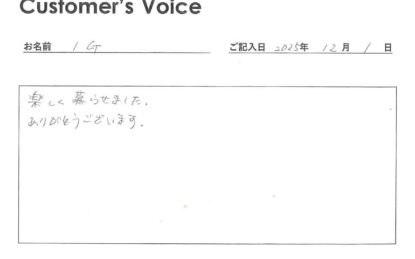 Customer's Voice
お名前 / G
ご記入日 2025年 12月 1日
楽しく暮らせました.
ありがとうございます.